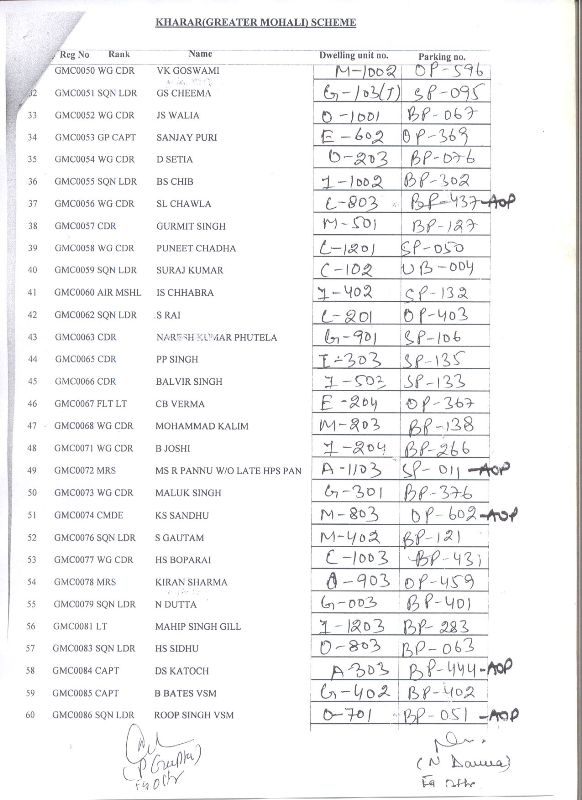 KHARAR(GREATER MOHALI) SCHEME
Reg No Rank Name Dwelling unit no. Parking no.
GMC0050 WG CDR VK GOSWAMI M-1002 OP-596
32 GMC0051 SQN LDR GS CHEEMA G-103(J) SP-095
33 GMC0052 WG CDR JS WALIA O-1001 BP-067
34 GMC0053 GP CAPT SANJAY PURI E-602 OP-369
35 GMC0054 WG CDR D SETIA O-203 BP-076
36 GMC0055 SQN LDR BS CHIB I-1002 BP-302
37 GMC0056 WG CDR SL CHAWLA C-803 BP-437-AOP
38 GMC0057 CDR GURMIT SINGH M-501 BP-127
39 GMC0058 WG CDR PUNEET CHADHA C-1201 SP-050
40 GMC0059 SQN LDR SURAJ KUMAR C-102 UB-004
41 GMC0060 AIR MSHL IS CHHABRA I-402 SP-132
42 GMC0062 SQN LDR S RAI C-201 OP-403
43 GMC0063 CDR NARESH KUMAR PHUTELA G-901 SP-106
44 GMC0065 CDR PP SINGH I-303 SP-135
45 GMC0066 CDR BALVIR SINGH I-502 SP-133
46 GMC0067 FLT LT CB VERMA E-204 OP-367
47 GMC0068 WG CDR MOHAMMAD KALIM M-203 BP-138
48 GMC0071 WG CDR B JOSHI I-204 BP-266
49 GMC0072 MRS MS R PANNU W/O LATE HPS PAN A-1103 SP-011-AOP
50 GMC0073 WG CDR MALUK SINGH G-301 BP-376
51 GMC0074 CMDE KS SANDHU M-803 OP-602-AOP
52 GMC0076 SQN LDR S GAUTAM M-402 BP-121
53 GMC0077 WG CDR HS BOPARAI C-1003 BP-431
54 GMC0078 MRS KIRAN SHARMA O-903 OP-459
55 GMC0079 SQN LDR N DUTTA G-003 BP-401
56 GMC0081 LT MAHIP SINGH GILL I-1203 BP-283
57 GMC0083 SQN LDR HS SIDHU O-803 BP-063
58 GMC0084 CAPT DS KATOCH A-303 BP-444-AOP
59 GMC0085 CAPT B BATES VSM G-402 BP-402
60 GMC0086 SQN LDR ROOP SINGH VSM O-701 BP-051-AOP
(P Gupta) (N